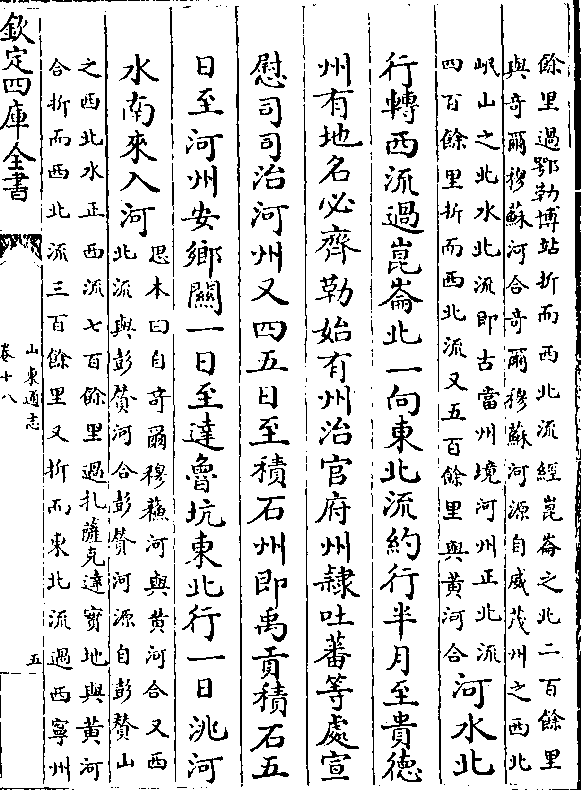 餘里過鄂勒博站折而西北流經崑崙之北二百餘里
與奇爾穆蘇河合奇爾穆蘇河源自威茂州之西北
岷山之北水北流即古當州境河州正北流
四百餘里折而西北流又五百餘里與黄河合
河水北
行轉西流過崑崙北一向東北流約行半月至貴德
州有地名必齊勒始有州治官府州隸吐蕃等處宣
慰司司治河州又四五日至積石州即禹貢積石五
日至河州安鄉關一日至達魯坑東北行一日洮河
水南來入河
思本曰自奇爾穆蘇河與黄河合又西
北流與彭贊河合彭贊河源自彭贊山
之西北水正西流七百餘里過扎薩克達實地與黄河
合折而西北流三百餘里又折而東北流過西寧州
欽定四庫全書
山東通志
卷十八
五